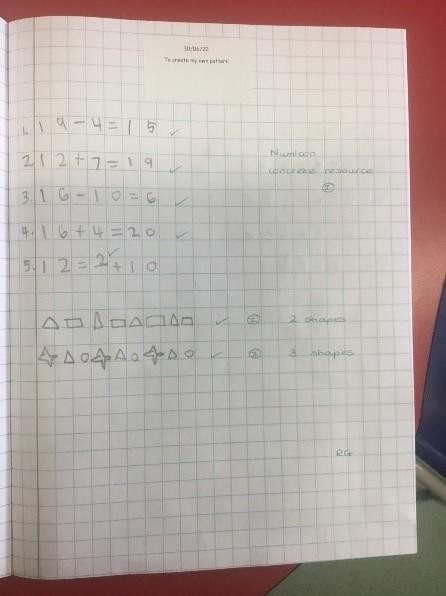 30/06/22
To create my own pattern
1. 19-4=15 ✓
2. 12+7=19 ✓
Numicon
concrete resource
I
3. 16-10=6 ✓
4. 16+4=20 ✓
5. 12=2+10 ✓
✓ I 2 shapes
✓ I 3 shapes
RG